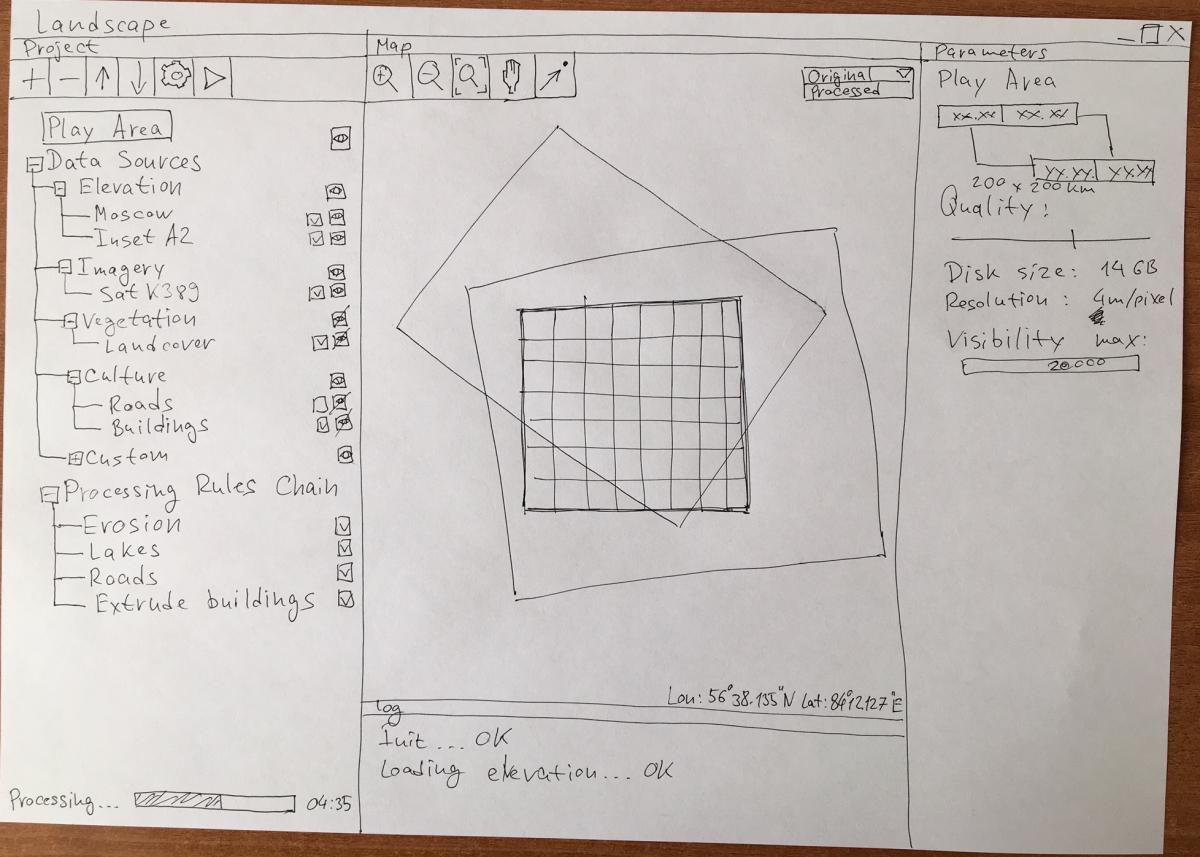 Landscape
Project
Play Area
Data Sources
Elevation
Moscow
Inset A2
Imagery
Sat K389
Vegetation
Landcover
Culture
Roads
Buildings
Custom
Processing Rules Chain
Erosion
Lakes
Roads
Extrude buildings
Processing... 04:35
Map
Original
Processed
Lon: 56°38.135"N Lat: 84°12.127"E
Log
Init ... OK
Loading elevation... OK
Parameters
Play Area
xx.xx xx.xx
yy.yy. yy.yy
200 x 200 km
Quality:
Disk size: 14 GB
Resolution: 4m/pixel
Visibility max:
20.000